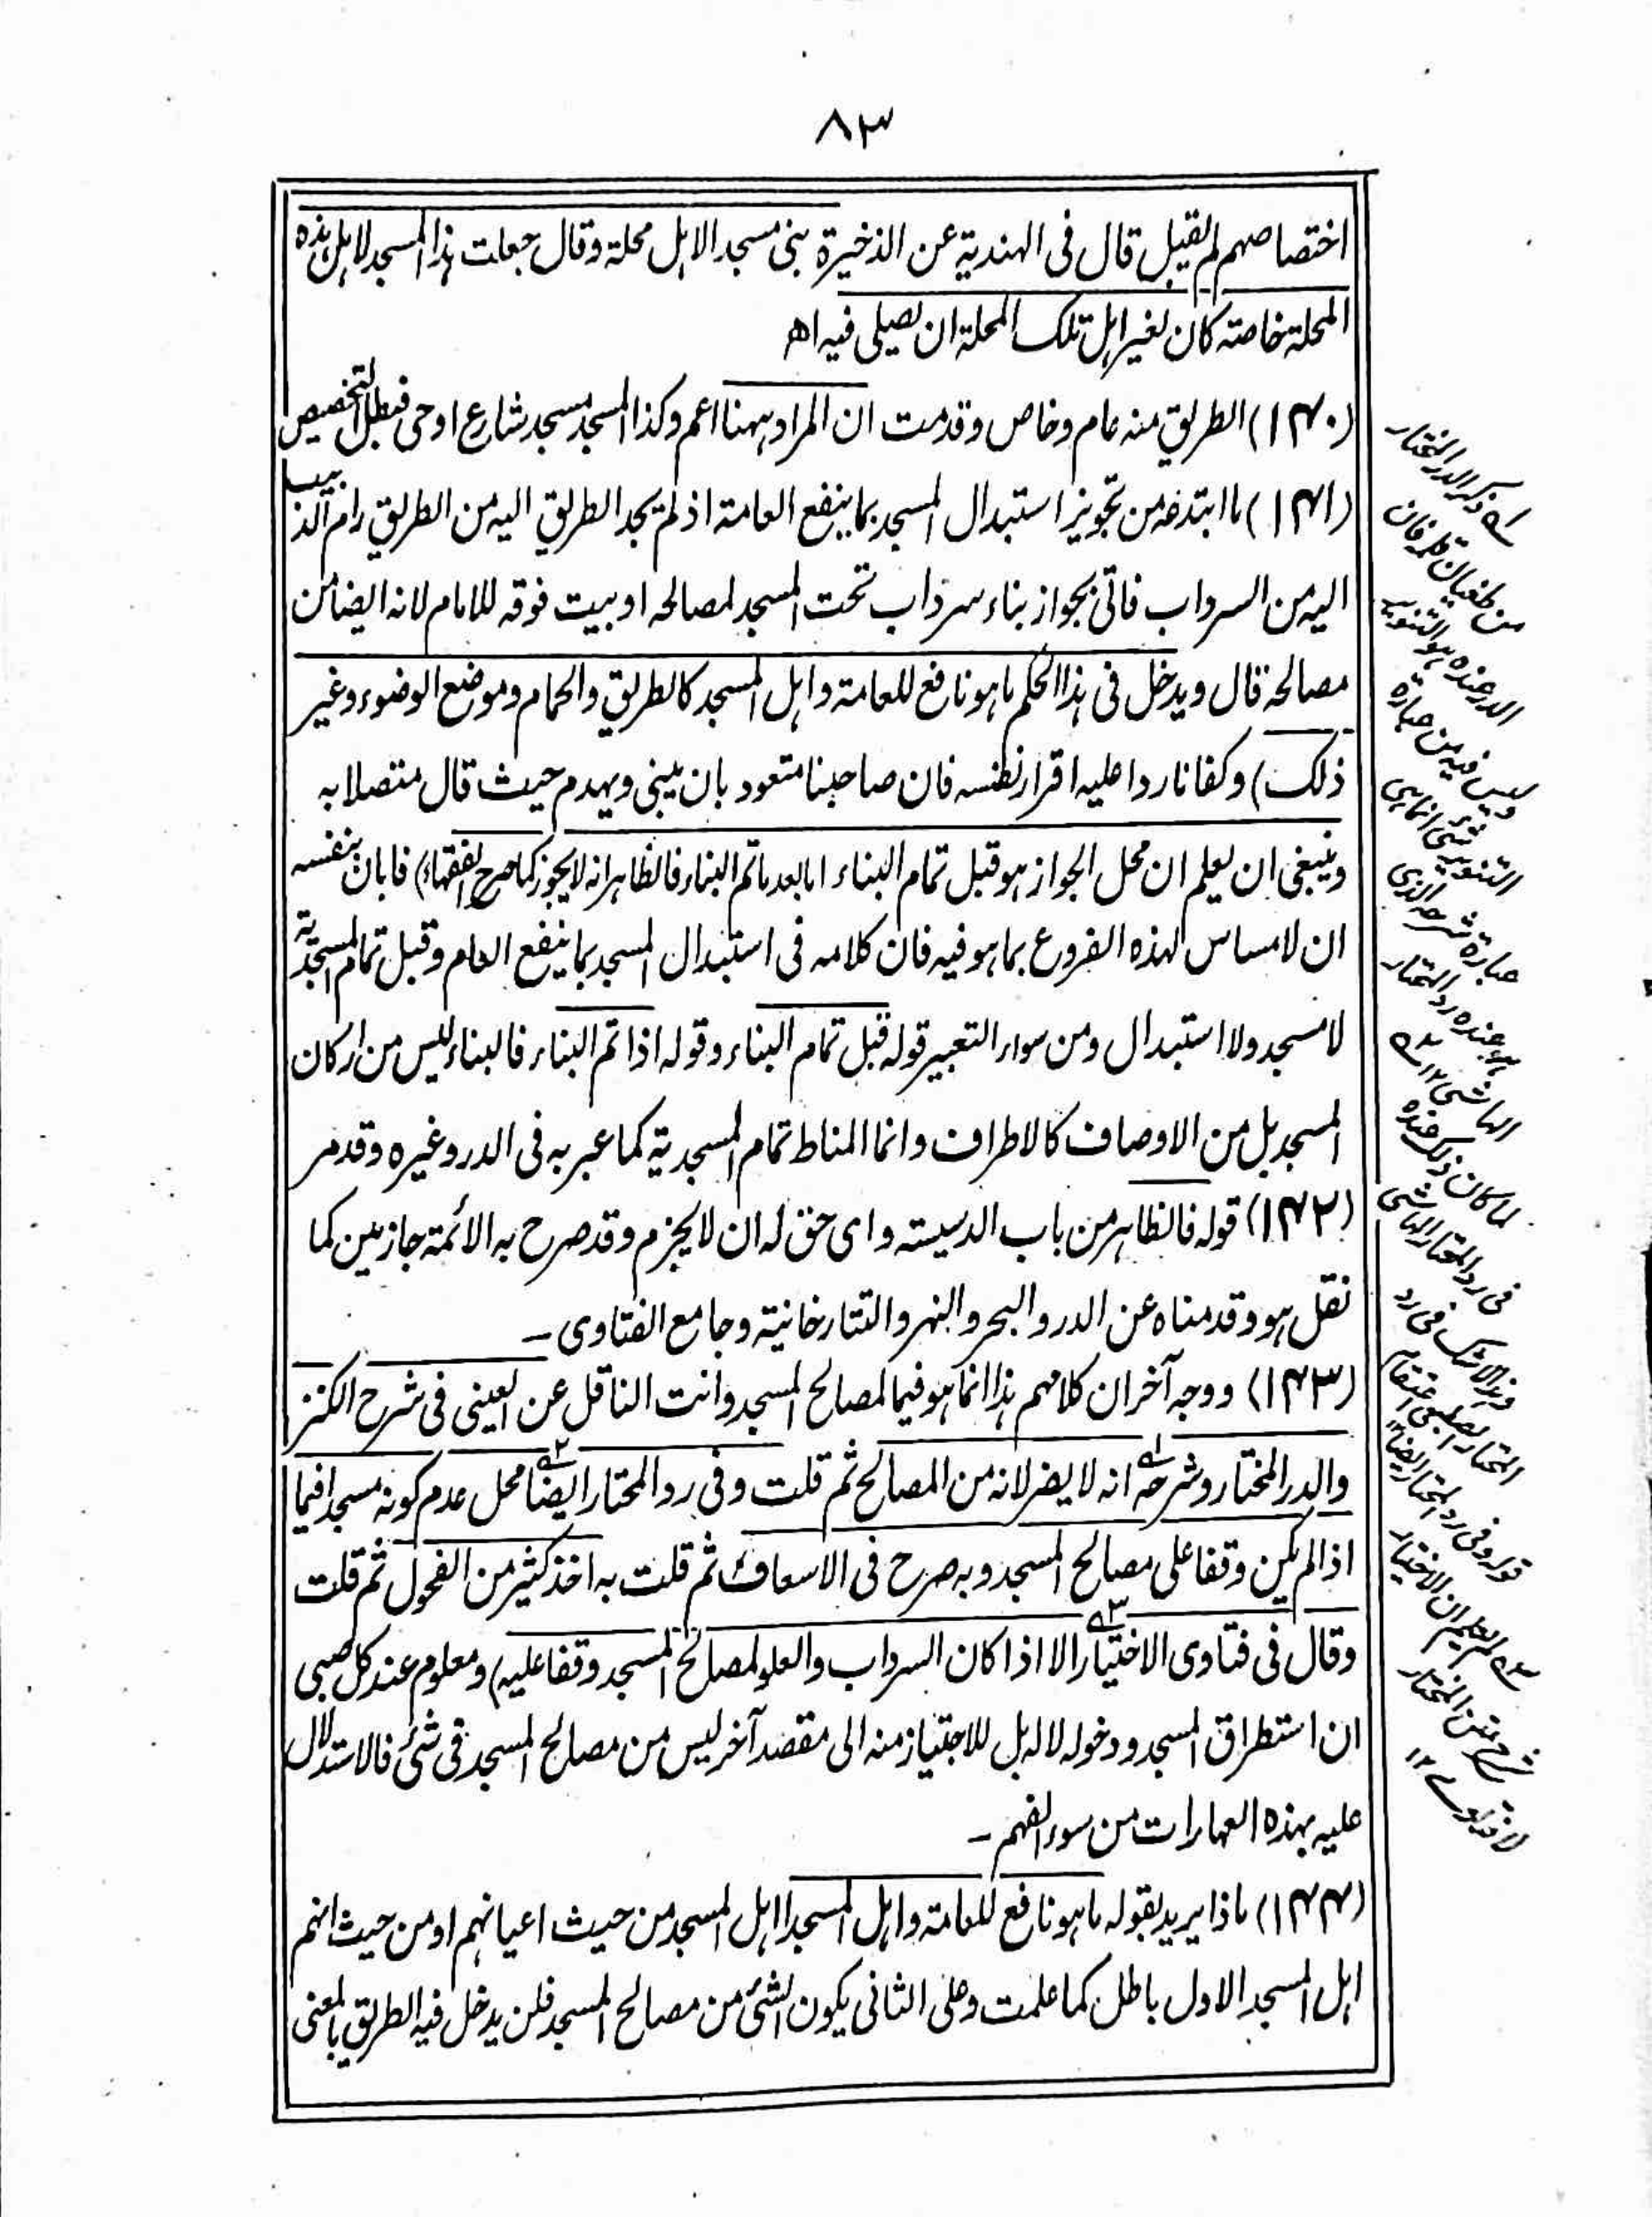 ٨٣
اختصاصهم لم يقبل قال فى الهندية عن الذخيرة بنى مسجدا لاهل محلة وقال جعلت هذا المسجد لاهل هذه
المحلة خاصة كان لغير اهل تلك المحلة ان يصلى فيه اھ
(١٤٠) الطريق منه عام وخاص وقدمت ان المراد ههنا اعم وكذا المسجد مسجد شارع او حى فبطل التخصيص
(١٤١) ما ابتدعه من تجويز استبدال المسجد بما ينفع العامة اذ لم يجد الطريق اليه من الطريق رام الذبيب
اليه من السرداب فاتى بجواز بناء سرداب تحت المسجد لمصالحه او بيت فوقه للامام لانه ايضا من
مصالحه قال ويدخل فى هذا الحكم ما هو نافع للعامة واهل المسجد كالطريق والحمام وموضع الوضوء وغير
ذلك) وكفانا ردا عليه اقرار نفسه فان صاحبنا متعود بان يبنى ويهدم حيث قال متصلا به
وينبغى ان يعلم ان محل الجواز هو قبل تمام البناء اما بعد ما تم البناء فالظاهر انه لا يجوز كما صرح الفقهاء) فابان بنفسه
ان لا مساس لهذه الفروع بما هو فيه فان كلامه فى استبدال المسجد بما ينفع العام وقبل تمام المسجدية
لا مسجد ولا استبدال ومن سوء التعبير قوله قبل تمام البناء وقوله اذا تم البناء فالبناء ليس من اركان
المسجد بل من الاوصاف كالاطراف وانما المناط تمام المسجدية كما عبر به فى الدر وغيره وقد مر
(١٤٢) قوله فالظاهر من باب الدسيسة واى حق له ان لا يجزم وقد صرح به الأئمة جازمين كما
نقل هو وقدمناه عن الدر والبحر والنهر والتتارخانية وجامع الفتاوى ـ
(١٤٣) ووجه آخر ان كلامهم هذا انما هو فيما لمصالح المسجد وانت الناقل عن العينى فى شرح الكنز
والدر المختار وشرحه ١ انه لا يضر لانه من المصالح ثم قلت وفى رد المحتار ايضا ٢ محل عدم كونه مسجدا فيما
اذا لم يكن وقفا على مصالح المسجد وبه صرح فى الاسعاف ثم قلت به اخذ كثير من الفحول ثم قلت
وقال فى فتاوى الاختيار ٣ الا اذا كان السرداب والعلو لمصالح المسجد وقفا عليه) ومعلوم عند كل صبى
ان استطراق المسجد ودخوله لا له بل للاجتياز منه الى مقصد آخر ليس من مصالح المسجد فى شئ فالاستدلال
عليه بهذه العبارات من سوء الفهم ـ
(١٤٤) ماذا يريد بقوله ما هو نافع للعامة واهل المسجد ا اهل المسجد من حيث اعيانهم او من حيث انهم
اهل المسجد الاول باطل كما علمت وعلى الثانى يكون الشئ من مصالح المسجد فلن يدخل فيه الطريق بالمعنى
١ ذكر الدر المختار
من طغيان قلمه فان
الدر عنده هو التنوير
وليس فيه من عبارة
التنوير شئ انما هى
عبارة شرحه الذى
هو عنده رد المحتار
الشامى ١٢ ٢
لما كان ذلك عنده
فى رد المحتار الشامى
وهذا لاشك فى رد
قوله وفى رد المحتار ايضا ١٢
٣ لم يعلم ان الاختيار
شرح متن المختار
لا فتاوى ١٢